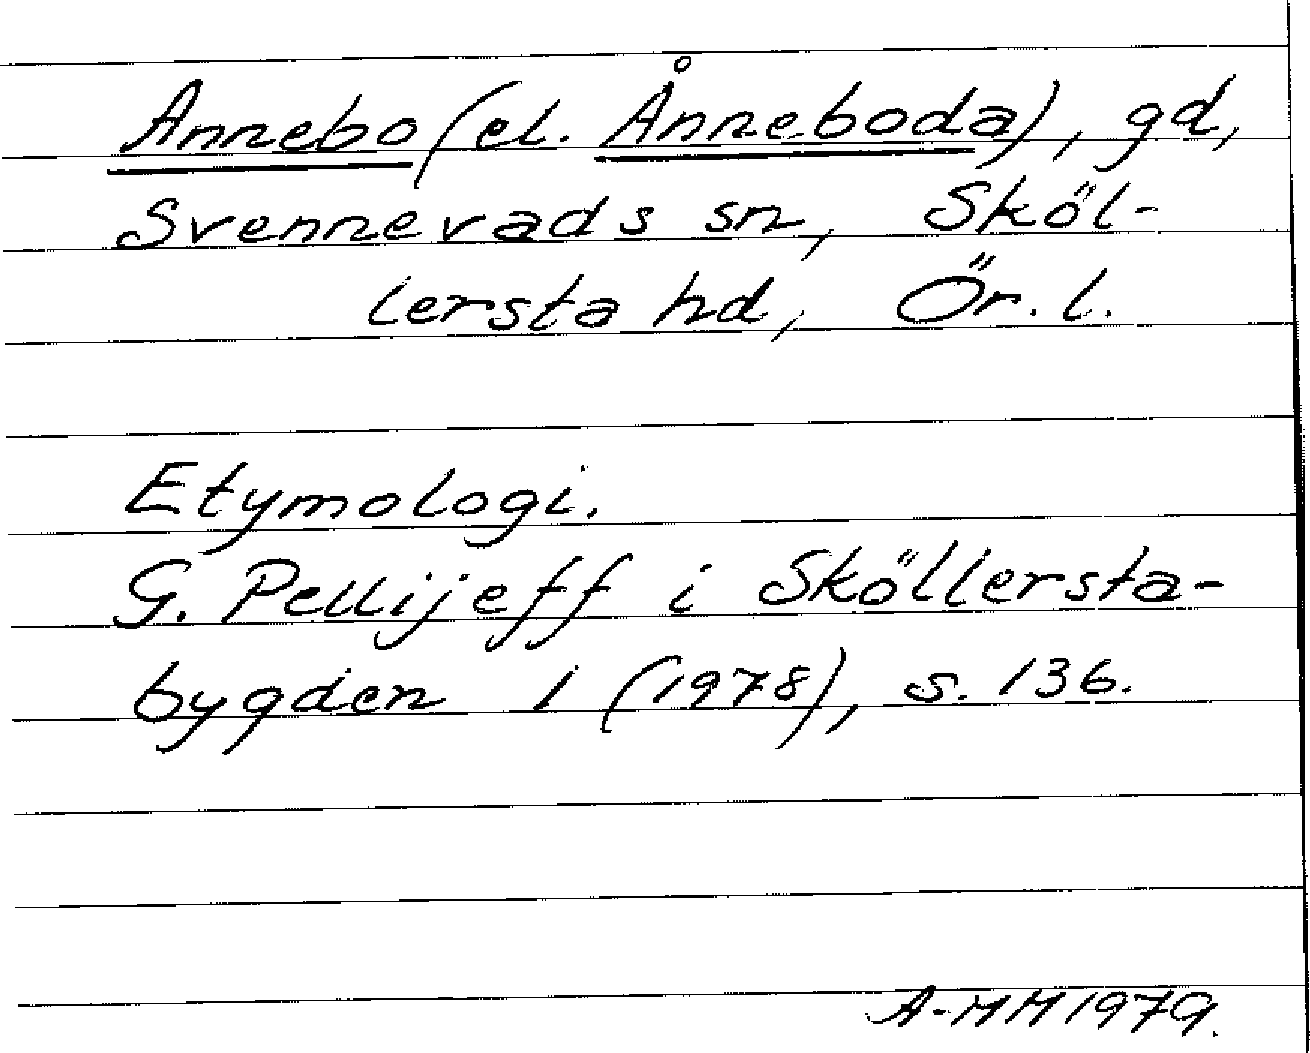 Annebo (el. Ånneboda), gd,
Svennevads sn, Sköl-
lersta hd, Ör. l.
Etymologi.
G. Pellijeff i Sköllersta-
bygden 1 (1978), s. 136.
A-MM 1979.